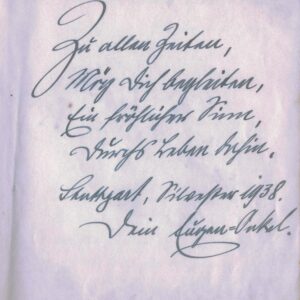 Zu allen Zeiten,
Mög Dich begleiten,
Ein fröhlicher Sinn,
Durchs Leben dahin.
Stuttgart, Silvester 1938.
Dein Eugen-Onkel.